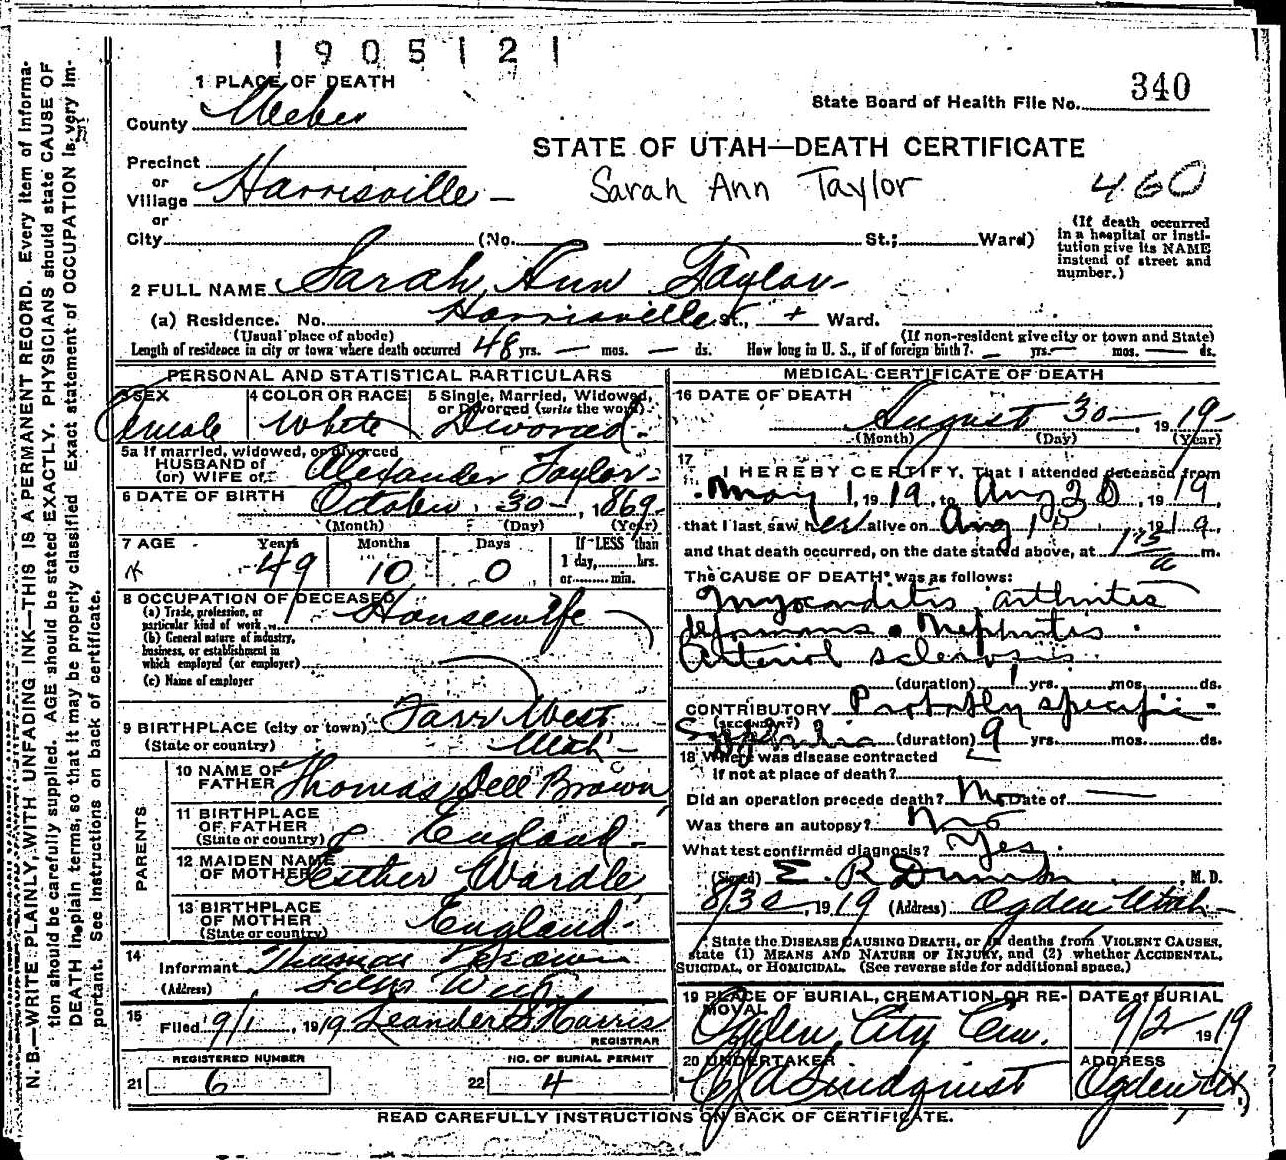 1905121
1 PLACE OF DEATH
State Board of Health File No. 340
County Weber
STATE OF UTAH—DEATH CERTIFICATE
Precinct
or
Village Harrisville –
Sarah Ann Taylor
460
or
City (No. St.; Ward)
(If death occurred
in a hospital or insti-
tution give its NAME
instead of street and
number.)
2 FULL NAME Sarah Ann Taylor
(a) Residence. No. Harrisville St., Ward.
(Usual place of abode)
(If non-resident give city or town and State)
Length of residence in city or town where death occurred 48 yrs. — mos. — ds. How long in U. S., if of foreign birth? – yrs. — mos. — ds.
PERSONAL AND STATISTICAL PARTICULARS
3 SEX
Female
4 COLOR OR RACE
White
5 Single, Married, Widowed,
or Divorced (write the word)
Divorced
5a If married, widowed, or divorced
HUSBAND of
(or) WIFE of Alexander Taylor
6 DATE OF BIRTH October 30 –, 1869
(Month) (Day) (Year)
7 AGE Years Months Days If LESS than
1 day, hrs.
or min.
49 10 0
8 OCCUPATION OF DECEASED
(a) Trade, profession, or
particular kind of work Housewife
(b) General nature of industry,
business, or establishment in
which employed (or employer)
(c) Name of employer
9 BIRTHPLACE (city or town) Farr West
(State or country) Utah
PARENTS
10 NAME OF
FATHER Thomas Dell Brown
11 BIRTHPLACE
OF FATHER
(State or country) England
12 MAIDEN NAME
OF MOTHER Esther Wardle
13 BIRTHPLACE
OF MOTHER
(State or country) England
14
Informant Thomas Brown
(Address)
15
Filed 9/1, 1919 Leander S Harris
REGISTRAR
REGISTERED NUMBER
21 6
NO. OF BURIAL PERMIT
22 4
MEDICAL CERTIFICATE OF DEATH
16 DATE OF DEATH
August 30 –, 1919
(Month) (Day) (Year)
17
I HEREBY CERTIFY, That I attended deceased from
May 1, 1919, to Aug 30, 1919
that I last saw her alive on Aug, 1919
and that death occurred, on the date stated above, at m.
The CAUSE OF DEATH* was as follows:
Myocarditis arthritis
deformans. Nephritis.
Arterial sclerosis.
(duration) 1 yrs. mos. ds.
CONTRIBUTORY Probably specific –
(SECONDARY)
Syphilis (duration) 9 yrs. mos. ds.
18 Where was disease contracted
If not at place of death?
Did an operation precede death? No Date of —
Was there an autopsy? No
What test confirmed diagnosis? Yes.
(Signed) E. R. Dumke, M. D.
8/30, 1919 (Address) Ogden Utah
* State the DISEASE CAUSING DEATH, or in deaths from VIOLENT CAUSES,
state (1) MEANS AND NATURE OF INJURY, and (2) whether ACCIDENTAL,
SUICIDAL, or HOMICIDAL. (See reverse side for additional space.)
19 PLACE OF BURIAL, CREMATION, OR RE-
MOVAL
Ogden City Cem.
DATE of BURIAL
9/2 1919
20 UNDERTAKER
Lindquist
ADDRESS
Ogden Ut.
READ CAREFULLY INSTRUCTIONS ON BACK OF CERTIFICATE.
N. B.—WRITE PLAINLY, WITH UNFADING INK—THIS IS A PERMANENT RECORD. Every item of informa-
tion should be carefully supplied. AGE should be stated EXACTLY. PHYSICIANS should state CAUSE OF
DEATH in plain terms, so that it may be properly classified. Exact statement of OCCUPATION is very im-
portant. See instructions on back of certificate.